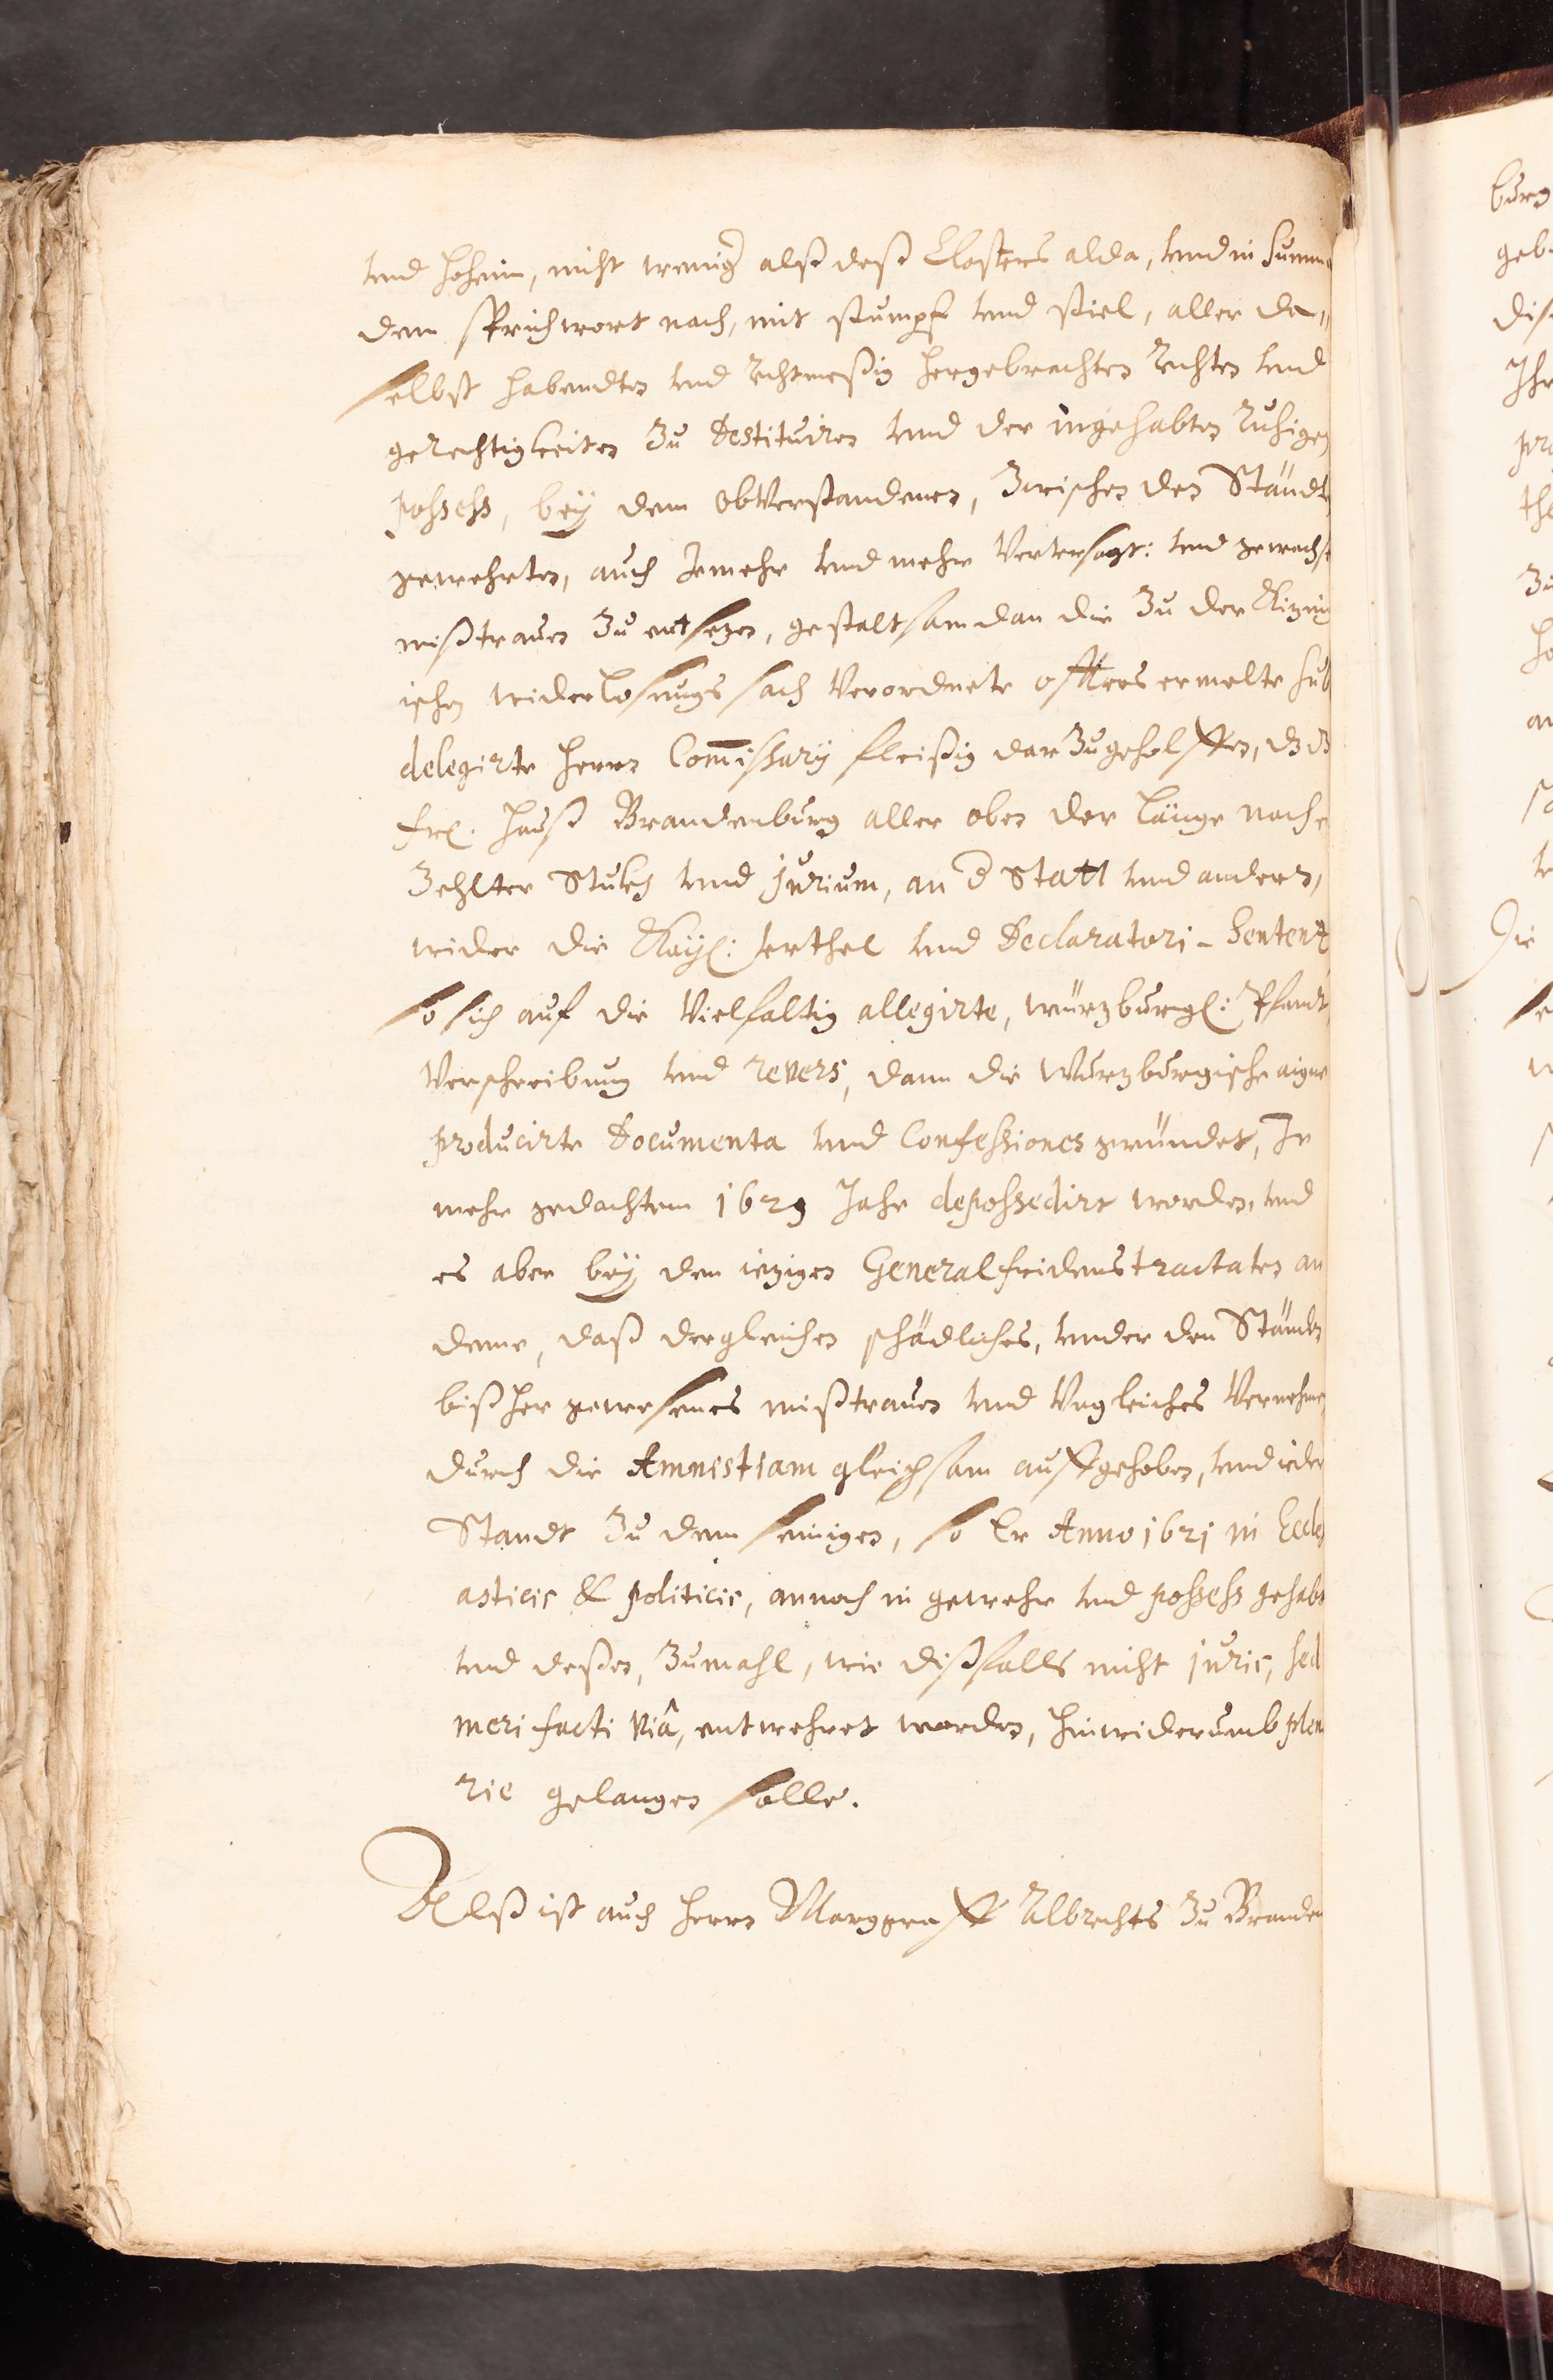 vnd hohein, nicht wenig alß deß Closters alda, vnd in Summa
dem sprichwort nach, mit stumpf vnd stiel, aller da„
selbst habendten vnd rechtmeßig hergebrachten rechten vnd
gerechtigkeiten Zu destituiren vnd der ingehabten ruhigen
possess, bey dem obverstandenen, Zwischen den Ständten
gewehrten, auch Jemehr vnd mehr vnd gewachs
mißtrauen Zu entsezen, gestaltsam dan die Zu der Kizing
ischen widerlosungs sach verordnete offters ermelte Sub
delegirte herrn Commissary fleißig dar Zu geholffen, dz dz
frl. hauß Brandenburg aller oben der länge nach er
Zehlter Stuken vnd Jurium, an d Statt vnd andern,
wider die Kayl: vrthel vnd Declaratori-Sententz
so sich auf die vielfaltig allegirte, würzburgl: Pfandt
verschreibung vnd revers, dann die Würzburgische aigne
producirte Documenta vnd Confessiones gründet, In
mehr gedachtem 1629 Jahr depossedirt worden, vnd
es aber bey den iezigen General fridenstractaten an
deme, daß dergleichen schädliches, vnder den Ständen
bißher gewesenes mißtrauen vnd vngleiches vernehmen
durch die Amnistiam gleichsam auffgehoben, vnd ieder
Standt Zu dem seinigen, so Er Anno 1621 in Eccles
asticis & politicis, annoch in gewehr vnd possess gehabt
vnd deßen, Zumahl, wie dißfalls nicht juris, sed
meri facti viâ, entwehret worden, hinwiderumb plen
rie gelangen solle.
Alß ist auch herrn Marggraff Albrechts Zu Branden
burg
geb
dis
Ihr